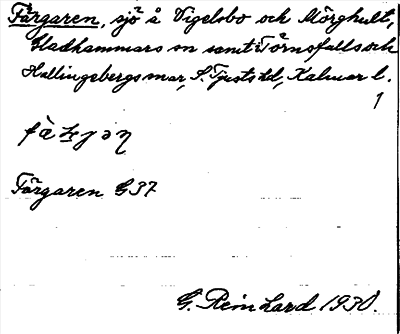 Färgaren, sjö å Vigelsbo och Mörghult,
Gladhammars sn samt i Törnsfalls och
Hallingebergs snar, S. Tjusts hd, Kalmar l.
1
Färgaren G37
G. Reinhard 1930.